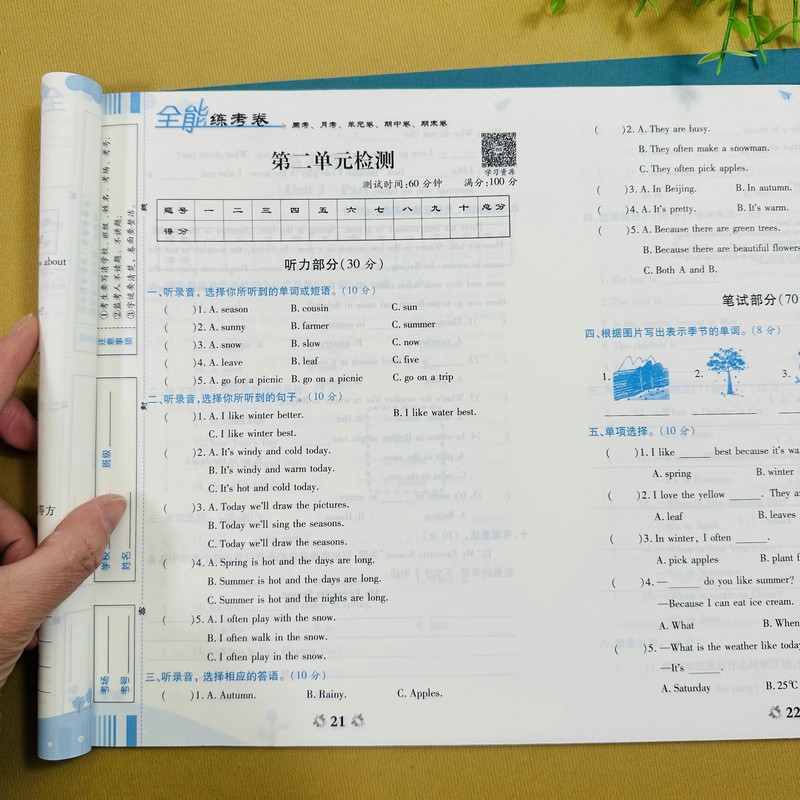 全能练考卷 周考、月考、单元卷、期中卷、期末卷
第二单元检测
学习资源
测试时间:60分钟 满分:100分
题号 一 二 三 四 五 六 七 八 九 十 总分
得分
听力部分(30分)
一、听录音,选择你所听到的单词或短语。(10分)
( )1. A. season B. cousin C. sun
( )2. A. sunny B. farmer C. summer
( )3. A. snow B. slow C. now
( )4. A. leave B. leaf C. five
( )5. A. go for a picnic B. go on a picnic C. go on a trip
二、听录音,选择你所听到的句子。(10分)
( )1. A. I like winter better. B. I like water best.
C. I like winter best.
( )2. A. It's windy and cold today.
B. It's windy and warm today.
C. It's hot and cold today.
( )3. A. Today we'll draw the pictures.
B. Today we'll sing the seasons.
C. Today we'll draw the seasons.
( )4. A. Spring is hot and the days are long.
B. Summer is hot and the days are long.
C. Summer is hot and the nights are long.
( )5. A. I often play with the snow.
B. I often walk in the snow.
C. I often play in the snow.
三、听录音,选择相应的答语。(10分)
( )1. A. Autumn. B. Rainy. C. Apples.
21
( )2. A. They are busy.
B. They often make a snowman.
C. They often pick apples.
( )3. A. In Beijing. B. In autumn.
( )4. A. It's pretty. B. It's warm.
( )5. A. Because there are green trees.
B. Because there are beautiful flowers
C. Both A and B.
笔试部分(70
四、根据图片写出表示季节的单词。(8分)
1. 2. 3.
五、单项选择。(10分)
( )1. I like ______ best because it's wa
A. spring B. winter
( )2. I love the yellow ______. They a
A. leaf B. leaves
( )3. In winter, I often ______.
A. pick apples B. plant f
( )4. —______ do you like summer?
—Because I can eat ice cream.
A. What B. When
( )5. —What is the weather like today
—It's ______.
A. Saturday B. 25℃
22
①考生要写清学校、班级、姓名、考场、考号;
②监考人不读题,不讲题;
③字迹要清楚,卷面要整洁。
注意事项
班级
学校
姓名
考场
考号
封
s about